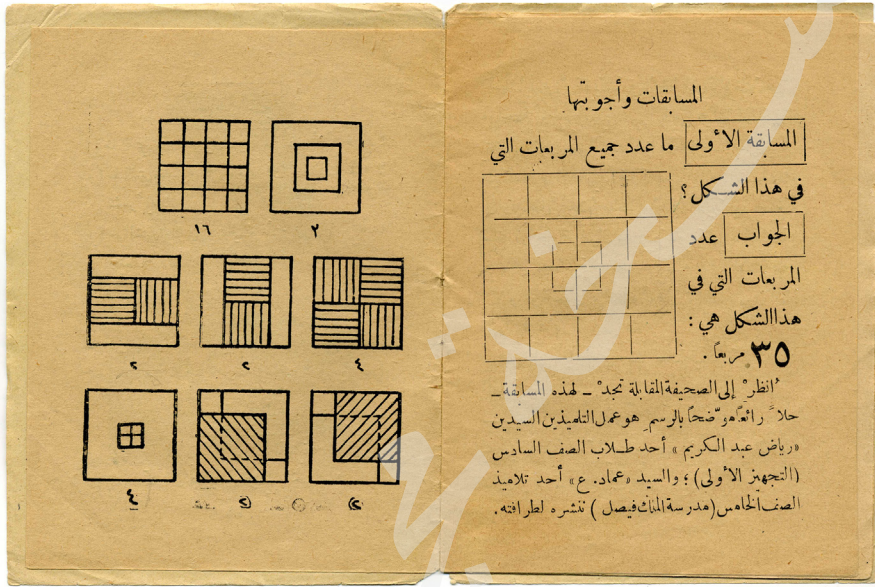 المسابقات وأجوبتها
المسابقة الأولى ما عدد جميع المربعات التي
في هذا الشكل؟
الجواب عدد
المربعات التي في
هذا الشكل هي :
٣٥ مربعاً .
أنظرْ إلى الصحيفة المقابلة تجدْ ـ لهذه المسابقة ـ
حلاً رائعاً موضّحاً بالرسم هو عمل التلميذين السيدين
«رياض عبد الكريم» أحد طلاب الصف السادس
(التجهيز الأولى) ؛ والسيد «عماد. ع» أحد تلاميذ
الصف الخامس (مدرسة الملك فيصل) ننشره لطرافته .
١٦ ٣
٢ ٢ ٤
٤ ٢ ٢